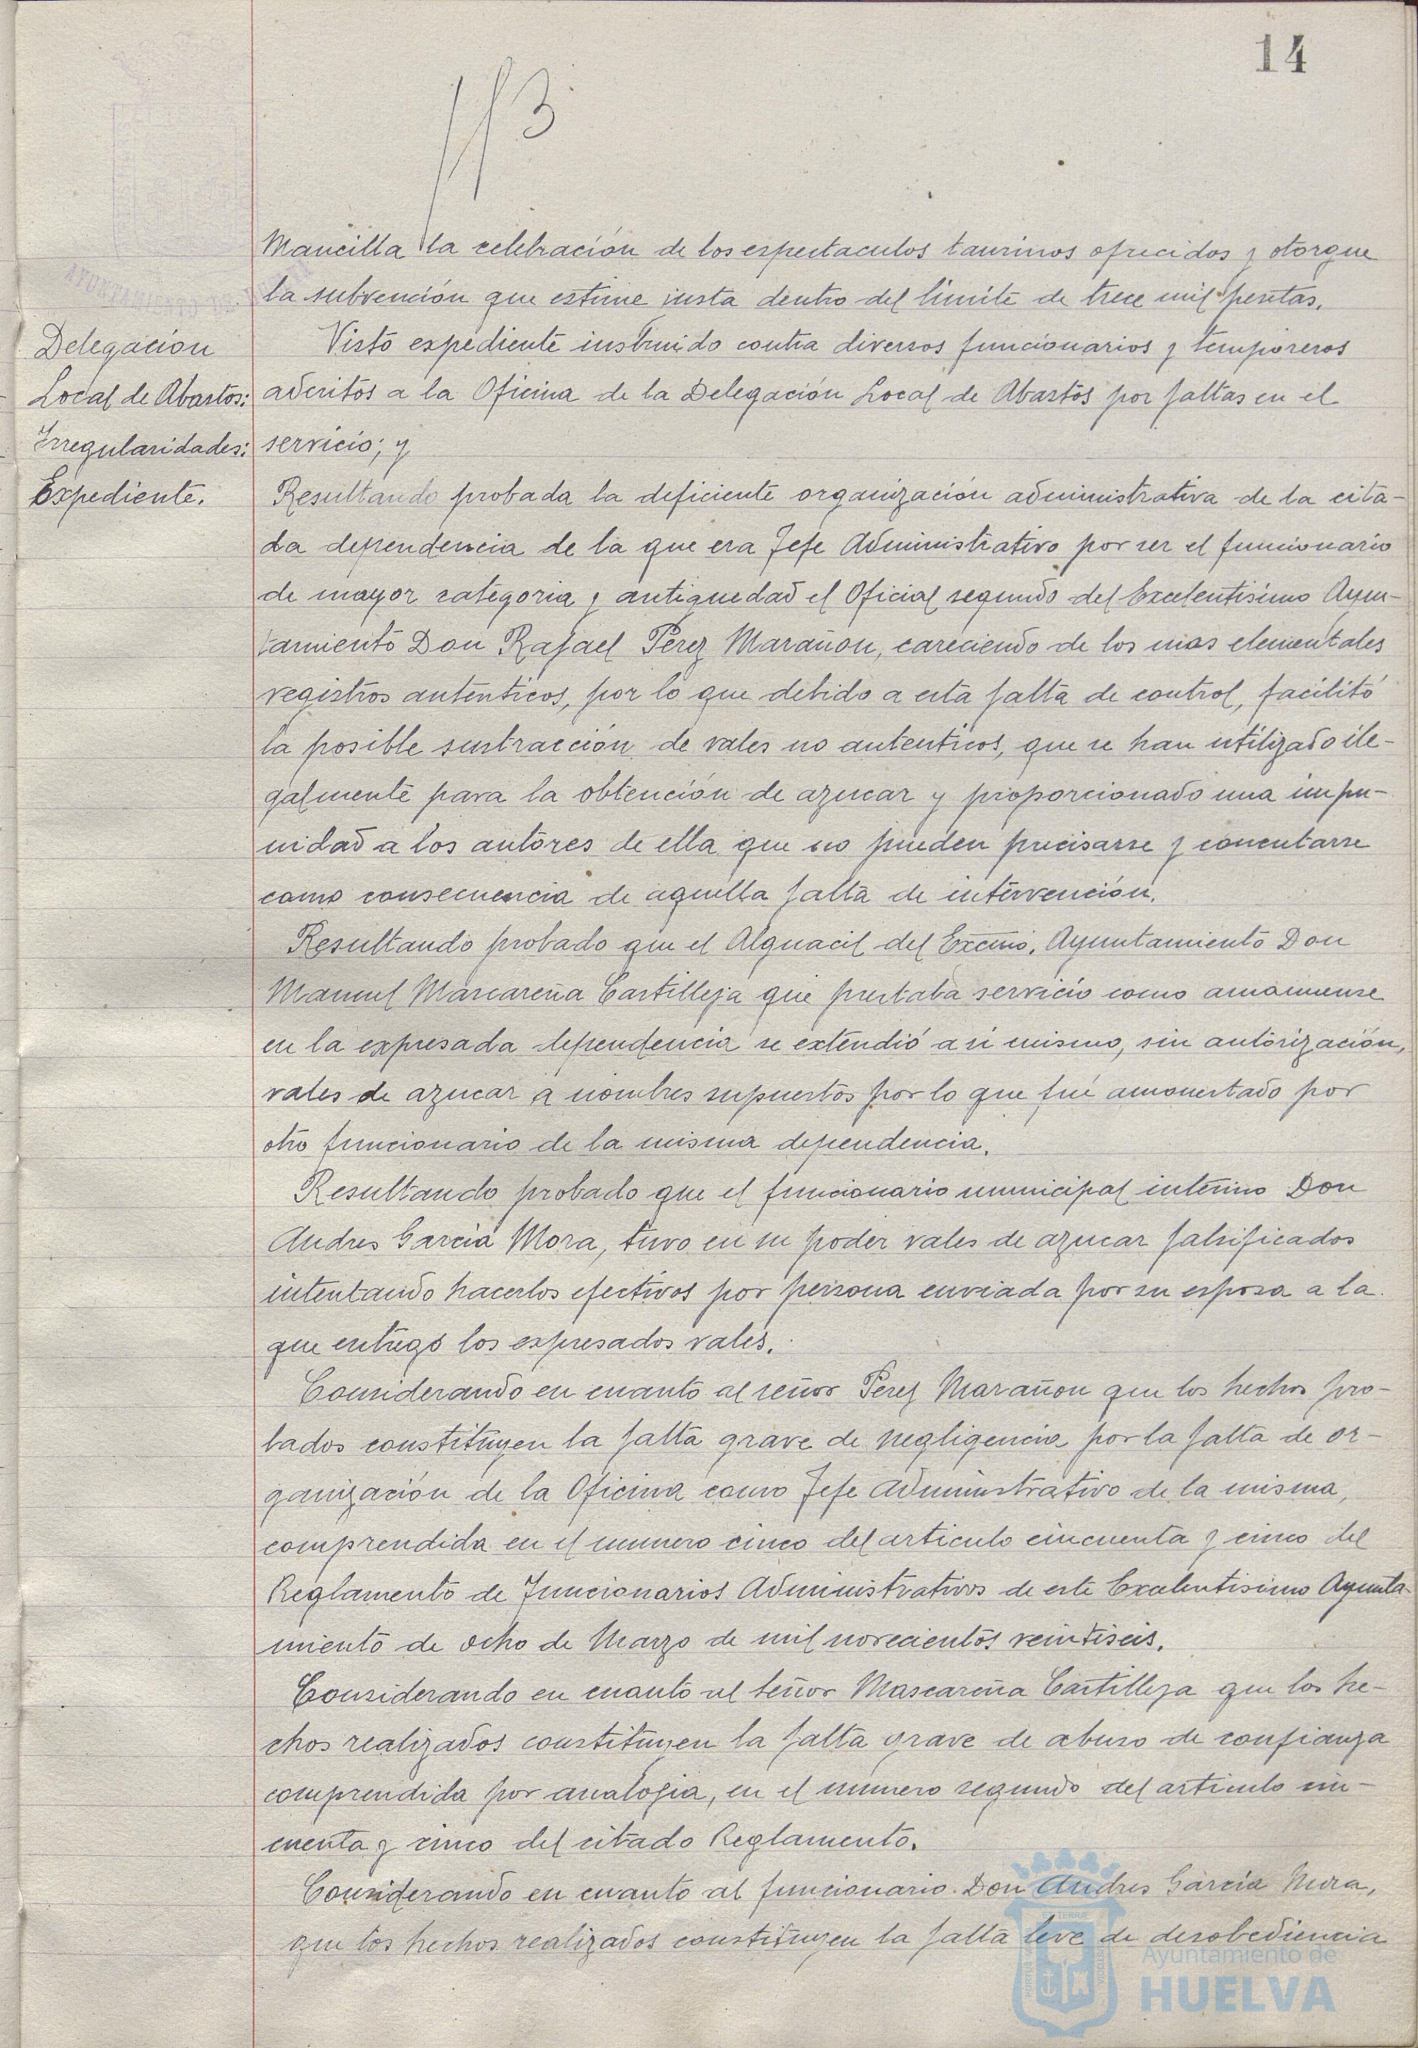 14
113
Mancilla la celebración de los espectaculos taurinos ofrecidos y otorgue
la subvención que estime justa dentro del límite de trece mil pesetas.
Delegación
Local de Abastos:
Irregularidades:
Expediente.
Visto expediente instruido contra diversos funcionarios y temporeros
adcritos a la Oficina de la Delegación Local de Abastos por faltas en el
servicio; y
Resultando probada la deficiente organización administrativa de la cita-
da dependencia de la que era Jefe Administrativo por ser el funcionario
de mayor categoria y antiguedad el Oficial segundo del Excelentisimo Ayun-
tamiento Don Rafael Pérez Marañon, careciendo de los mas elementales
registros autenticos, por lo que debido a esta falta de control, facilitó
la posible sustracción de vales no autenticos, que se han utilizado ile-
galmente para la obtención de azucar y proporcionado una impu-
nidad a los autores de ella que no pueden precisarse y
como consecuencia de aquella falta de intervención.
Resultando probado que el Alguacil del Excmo. Ayuntamiento Don
Manuel Mascareña Castilleja que prestaba servicio como amanuense
en la expresada dependencia se extendió a si mismo, sin autorización,
vales de azucar a nombres supuestos por lo que fué amonestado por
otro funcionario de la misma dependencia.
Resultando probado que el funcionario municipal interino Don
Andres García Mora, tuvo en su poder vales de azucar falsificados
intentando hacerlos efectivos por persona enviada por su esposa a la
que entregó los expresados vales.
Considerando en cuanto al señor Perez Marañon que los hechos pro-
bados constituyen la falta grave de negligencia por la falta de or-
ganización de la Oficina como Jefe Administrativo de la misma,
comprendida en el numero cinco del articulo cincuenta y cinco del
Reglamento de Funcionarios Administrativos de este Excelentisimo Ayunta-
miento de ocho de Marzo de mil novecientos veintiseis.
Considerando en cuanto al señor Mascareña Castilleja que los he-
chos realizados constituyen la falta grave de abuso de confianza
comprendida por analogia, en el numero segundo del articulo cin-
cuenta y cinco del citado Reglamento.
Considerando en cuanto al funcionario Don Andres García Mora,
que los hechos realizados constituyen la falta leve de desobediencia
Ayuntamiento de
HUELVA